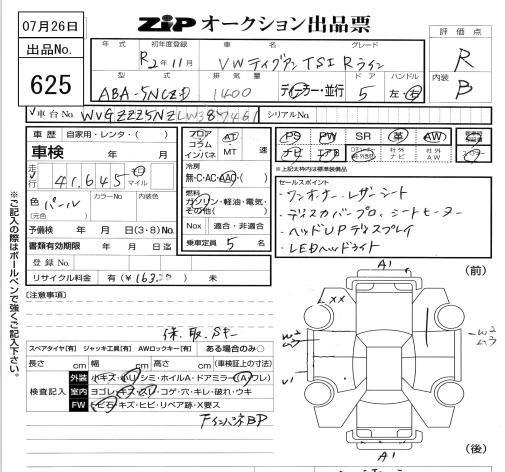 07月26日
ZiP オークション出品票
出品No.
625
年式 初年度登録 車名 グレード
R2年11月 VWティグアンTSI Rライン
型式 排気量 ドア ハンドル
ABA-5NCZD 1400 ディーラー・並行 5 左・右
評価点
R
内装
B
車台No. WVGZZZ5NZLW387461 シリアルNo.
車歴 自家用・レンタ・( )
車検 年 月
走行 41,645 キロ マイル
色 パール カラーNo. 内装色
(元色)
予備検 年 月 日(3・8)No.
書類有効期限 年 月 日迄
登録No.
リサイクル料金 有(¥ ) 未
フロア コラム インパネ AT MT 速
冷房
無・C・AC・AAC・( )
燃料
ガソリン・軽油・電気・その他( )
Nox 適合・非適合
乗車定員 5 名
PS PW SR 革 AW
ナビ エアB 社外ナビ 社外AW
※上記太枠内は標準装備品
セールスポイント
・ワンオーナー、レザーシート
・ディスカバープロ、シートヒーター
・ヘッドUPディスプレイ
・LEDヘッドライト
※ご記入の際はボールペンで強くご記入下さい。
[注意事項]
保、取、Sキー
スペアタイヤ[有] ジャッキ工具[有] AWロックキー[有] ある場合のみ○
長さ cm 幅 cm 高さ cm (車検証上の寸法)
検査記入
外装 小キズ・小凹・シミ・ホイルA・ドアミラー(A・フレ)
室内 ヨゴレ・キズ・スリ・コゲ・穴・キレ・破れ・ウキ
FW トビ石・キズ・ヒビ・リペア跡・X要ス
FインパネBP
A1
(前)
XX
W2
W2
A1
(後)